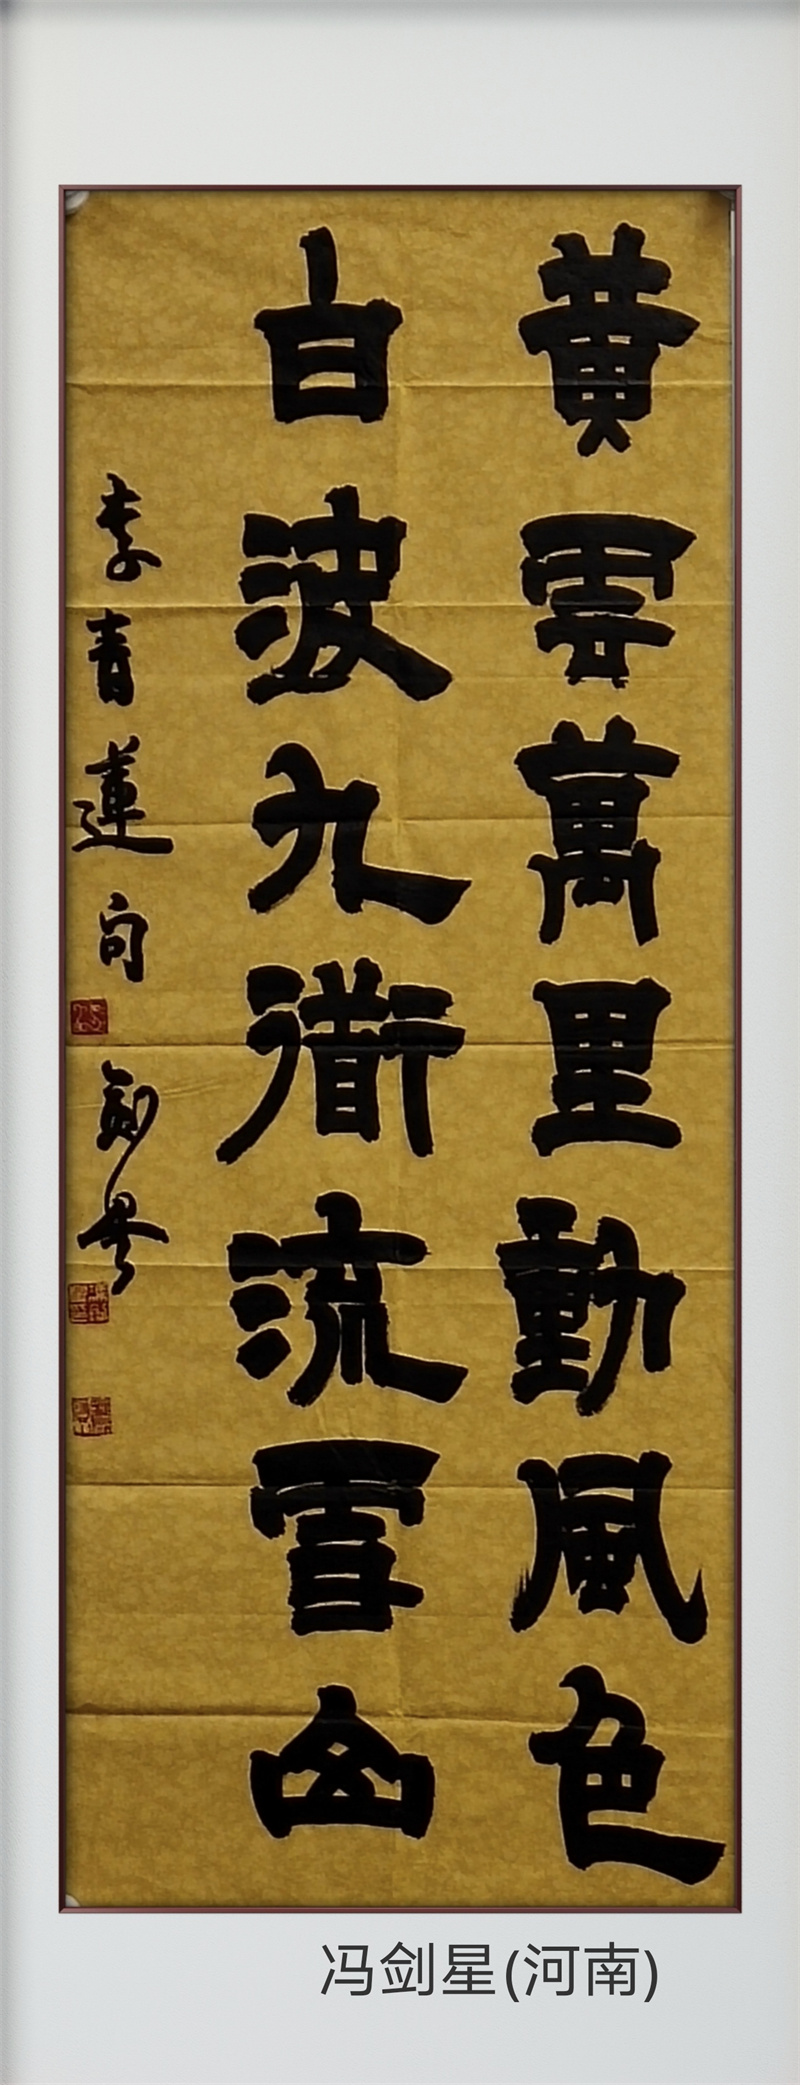 黄雲萬里動風色
白波九衜流雪山
李青蓮句 劍星
冯剑星(河南)